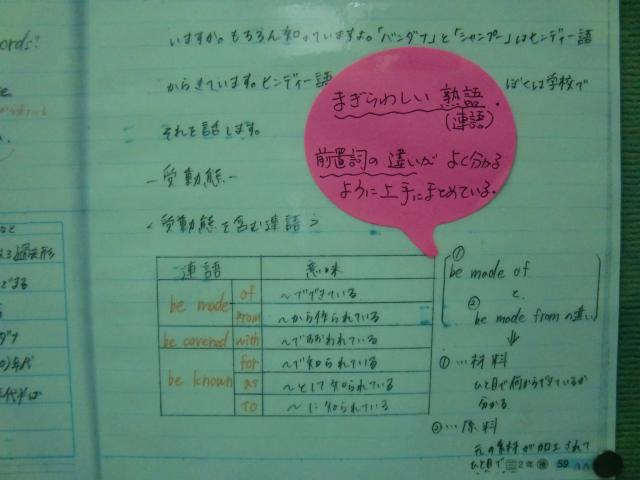 ords?
いますか。もちろん知っていますよ。「バンダナ」と「シャンプー」はヒンディー語
からきています。ヒンディー語
ぼくは学校で
それを話します。
まぎらわしい熟語.
(連語)
前置詞の違いが よく分かる
ように上手にまとめている.
－受動態－
<受動態を含む連語>
連語 意味
be made of ～でできている
from ～から作られている
be covered with ～でおおわれている
be known for ～で知られている
as ～として知られている
to ～に知られている
①
be made of
と、
②
be made fromの違い
①…材料
ひと目で何からできているか
分かる
②…原料
元の素材が加工されて
ひと目で
2年 59